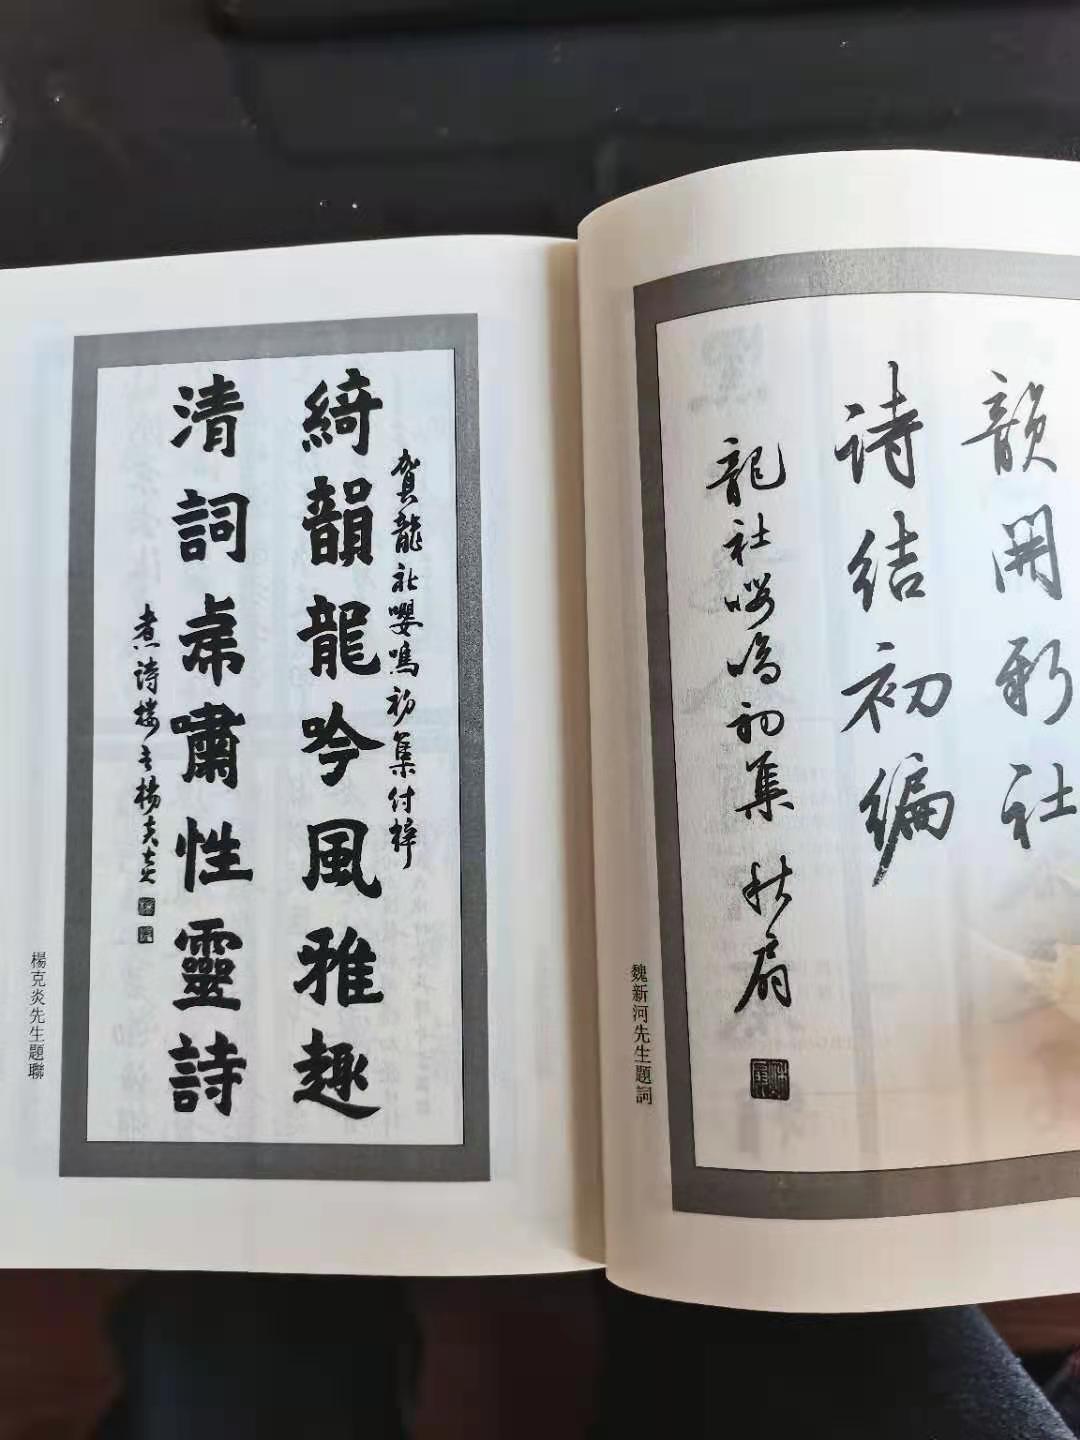 韻開新社
诗结初编
龍社嚶鳴初集 秋扇
魏新河先生題詞
賀龍社嚶鳴初集付梓
綺韻龍吟風雅趣
清詞虎嘯性靈詩
煮詩樓主楊克炎
楊克炎先生題聯